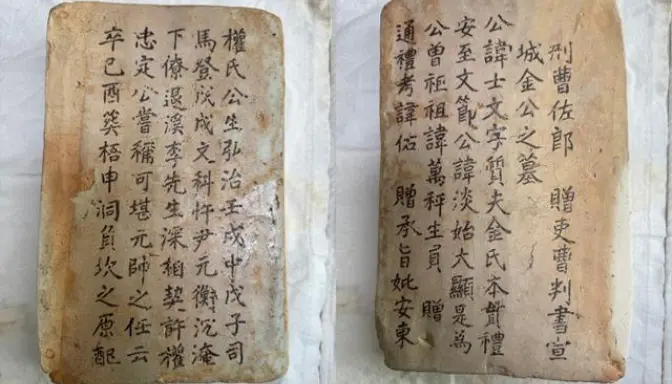 刑曹佐郎 贈吏曹判書宣
城金公之墓
公諱士文字質夫金氏本貫禮
安至文節公諱淡始大顯是爲
公曾祖祖諱萬秤生員 贈
通禮考諱佑 贈承旨妣安東
權氏公生弘治壬戌中戊子司
馬登戊戌文科忤尹元衡沉淹
下僚退溪李先生深相契許權
忠定公嘗稱可堪元帥之任云
卒己酉葬梧申洞負坎之原配